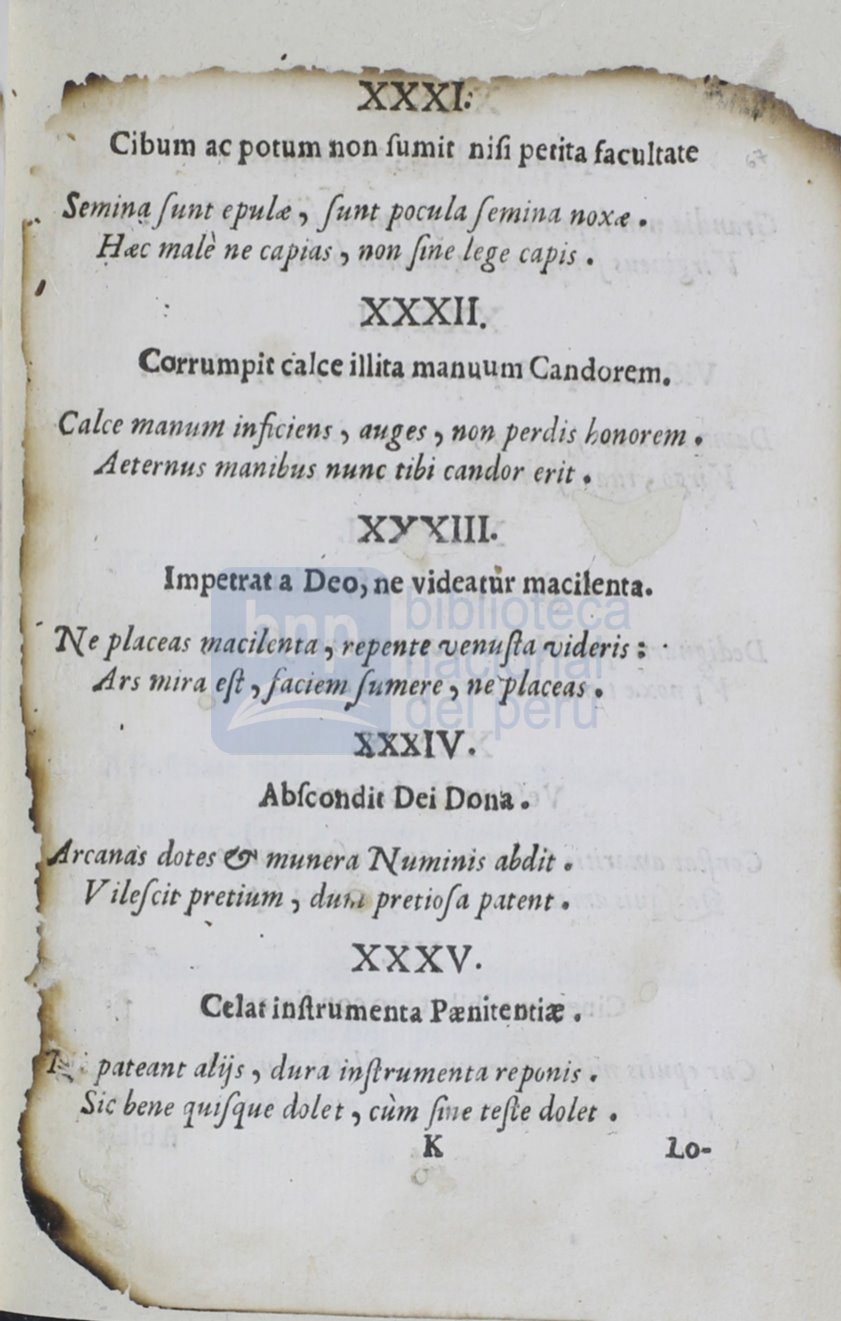 XXXI.
Cibum ac potum non ſumit niſi petita facultate
Semina ſunt epulæ, ſunt pocula ſemina noxæ.
Hæc malè ne capias, non ſine lege capis.
XXXII.
Corrumpit calce illita manuum Candorem.
Calce manum inficiens, auges, non perdis honorem.
Aeternus manibus nunc tibi candor erit.
XXXIII.
Impetrat a Deo, ne videatur macilenta.
Ne placeas macilenta, repente venuſta videris:
Ars mira eſt, faciem ſumere, ne placeas.
XXXIV.
Abſcondit Dei Dona.
Arcanas dotes & munera Numinis abdit.
Vileſcit pretium, dum pretioſa patent.
XXXV.
Celat inſtrumenta Pænitentiæ.
pateant alijs, dura inſtrumenta reponis.
Sic bene quiſque dolet, cùm ſine teſte dolet.
K Lo-
bnp biblioteca
nacional
del perú